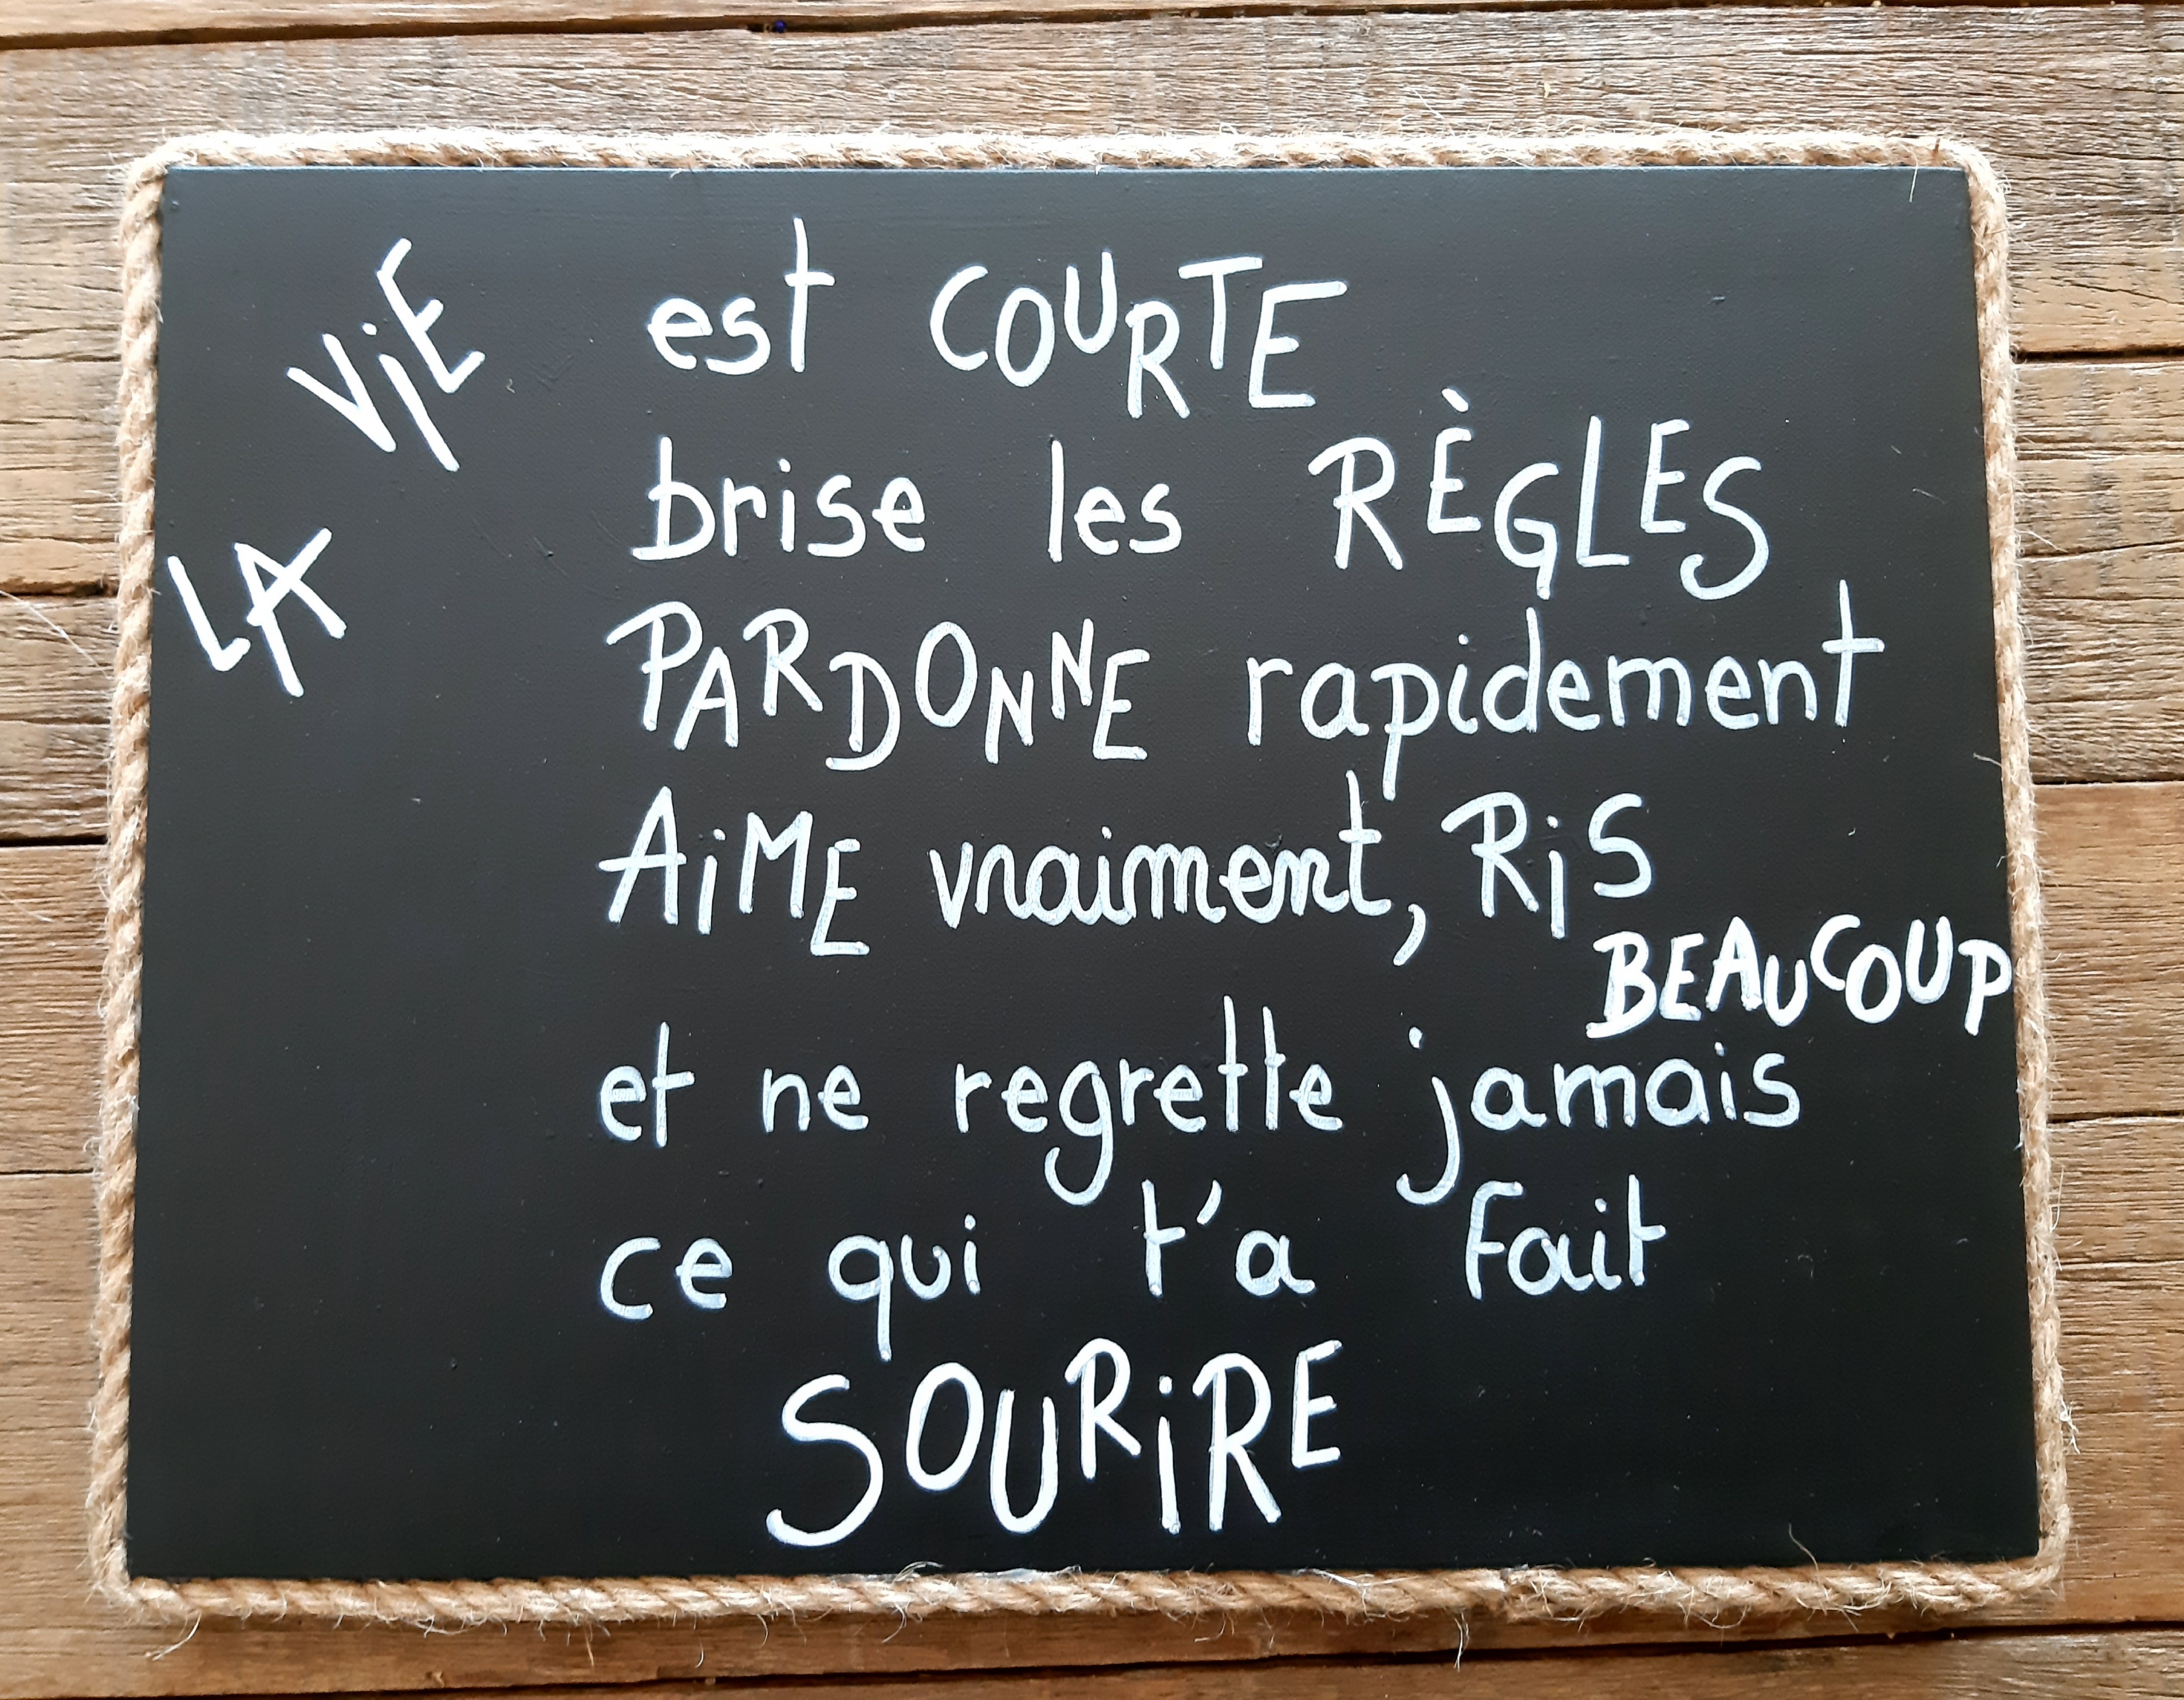 LA ViE est COURTE
brise les RÈGLES
PARDONNE rapidement
AiME vraiment, RiS
BEAUCOUP
et ne regrette jamais
ce qui t'a fait
SOURiRE